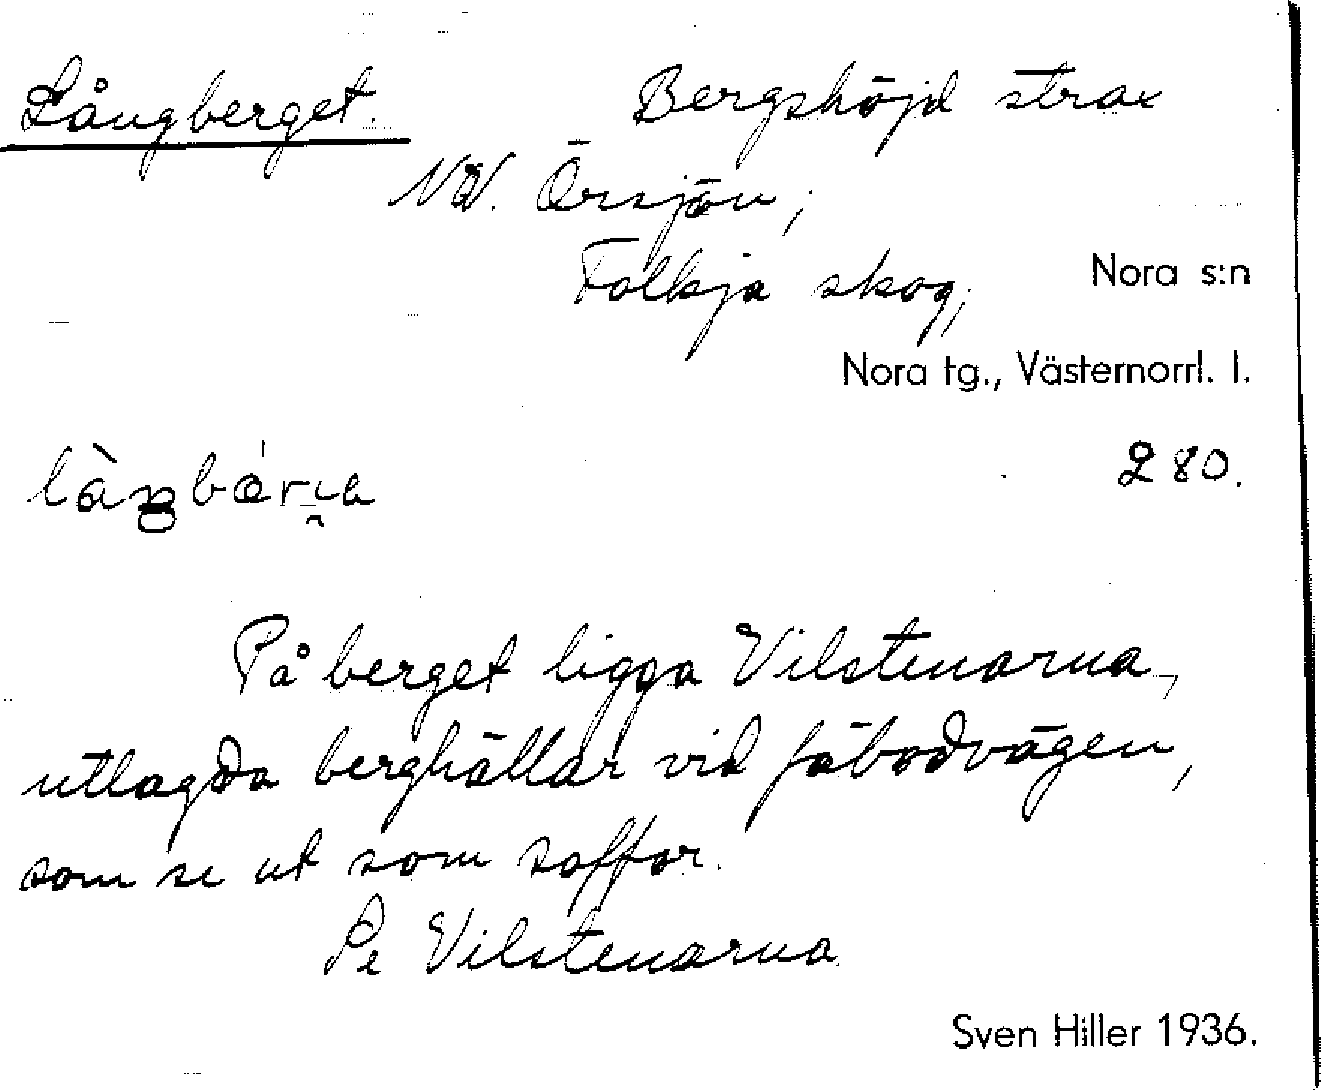 Långberget. Bergshöjd strax
NV. Örsjön;
Folkja skog; Nora s:n
Nora tg., Västernorrl. l.
280.
På berget ligga Vilstenarna,
utlagda berghällar vid fäbodvägen,
som se ut som soffor.
Se Vilstenarna
Sven Hiller 1936.